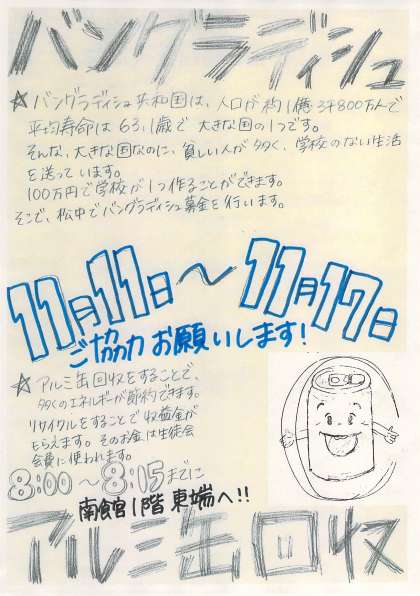 バングラディシュ
☆バングラディシュ共和国は、人口が約1億3千800万人で
平均寿命は63.1歳で大きな国の1つです。
そんな、大きな国なのに、貧しい人が多く、学校のない生活
を送っています。
100万円で学校が1つ作ることができます。
そこで、松中でバングラディシュ募金を行います。
11月11日〜11月17日
ご協力お願いします!
☆アルミ缶回収をすることで、
多くのエネルギーが節約できます。
リサイクルをすることで収益金が
もらえます。そのお金は生徒会
会費に使われます。
8:00〜8:15までに
南館1階東端へ!!
アルミ缶回収